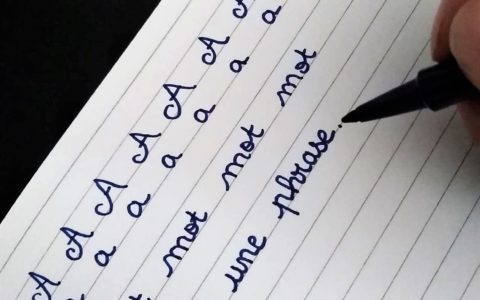 A A A A A A A
a a a a a a a
mot mot mot
une phrase.